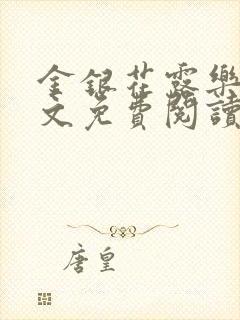 金銀花露樂
文免費閱讀
唐皇